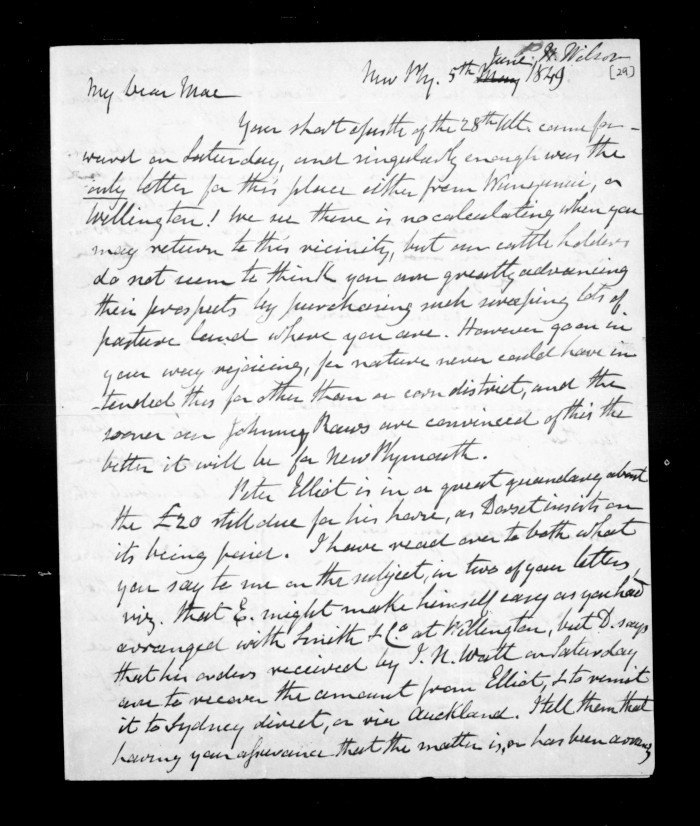 P. Wilson
[29]
New Ply. 5th May June 1849.
My dear Mac
Your short epistle of the 28th Ult. came for-
ward on Saturday, and singularly enough was the
only letter for this place either from Wanganui, or
Wellington! We see there is no calculating when you
may return to this vicinity, but our cattle holders
do not seem to think you are greatly advancing
their prospects by purchasing such sweeping lots of
pasture land where you are. However go on in
your way rejoicing, for nature never could have in
-tended this for other than a corn district, and the
sooner our Johnny Raws are convinced of this the
better it will be for New Plymouth.
Peter Elliot is in a great quandary about
the £20 still due for his horse, as Dorset insists on
its being paid. I have read over to both what
you say to me on the subject, in two of your letters,
viz. that E. might make himself easy as you had
arranged with Smith & Co at Wellington, but D. says
that his orders received by I. N. Watt on Saturday
are to recover the amount from Elliot, & to remit
it to Sydney direct, or via Auckland. I tell them that
having your assurance that the matter is, or has been